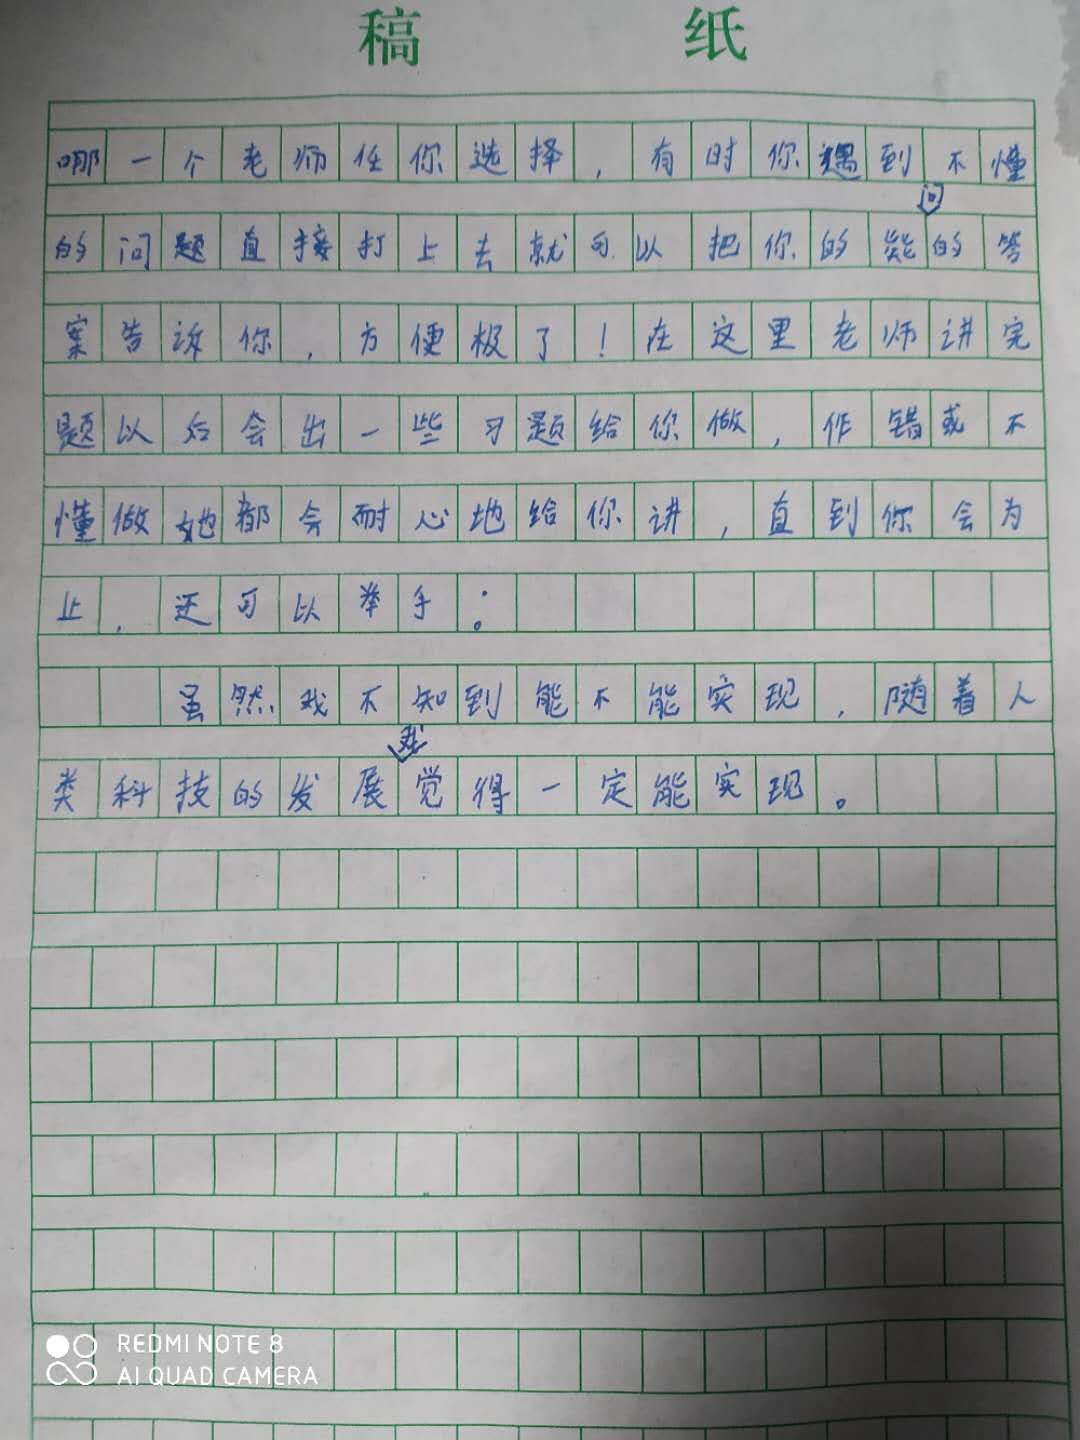 稿 纸
哪一个老师任你选择，有时你遇到不懂
的问题直接打上去就可以把你的问的答
案告诉你，方便极了！在这里老师讲完
题以后会出一些习题给你做，作错或不
懂做她都会耐心地给你讲，直到你会为
止，还可以举手：。
虽然我不知到能不能实现，随着人
类科技的发展我觉得一定能实现。
REDMI NOTE 8
AI QUAD CAMERA